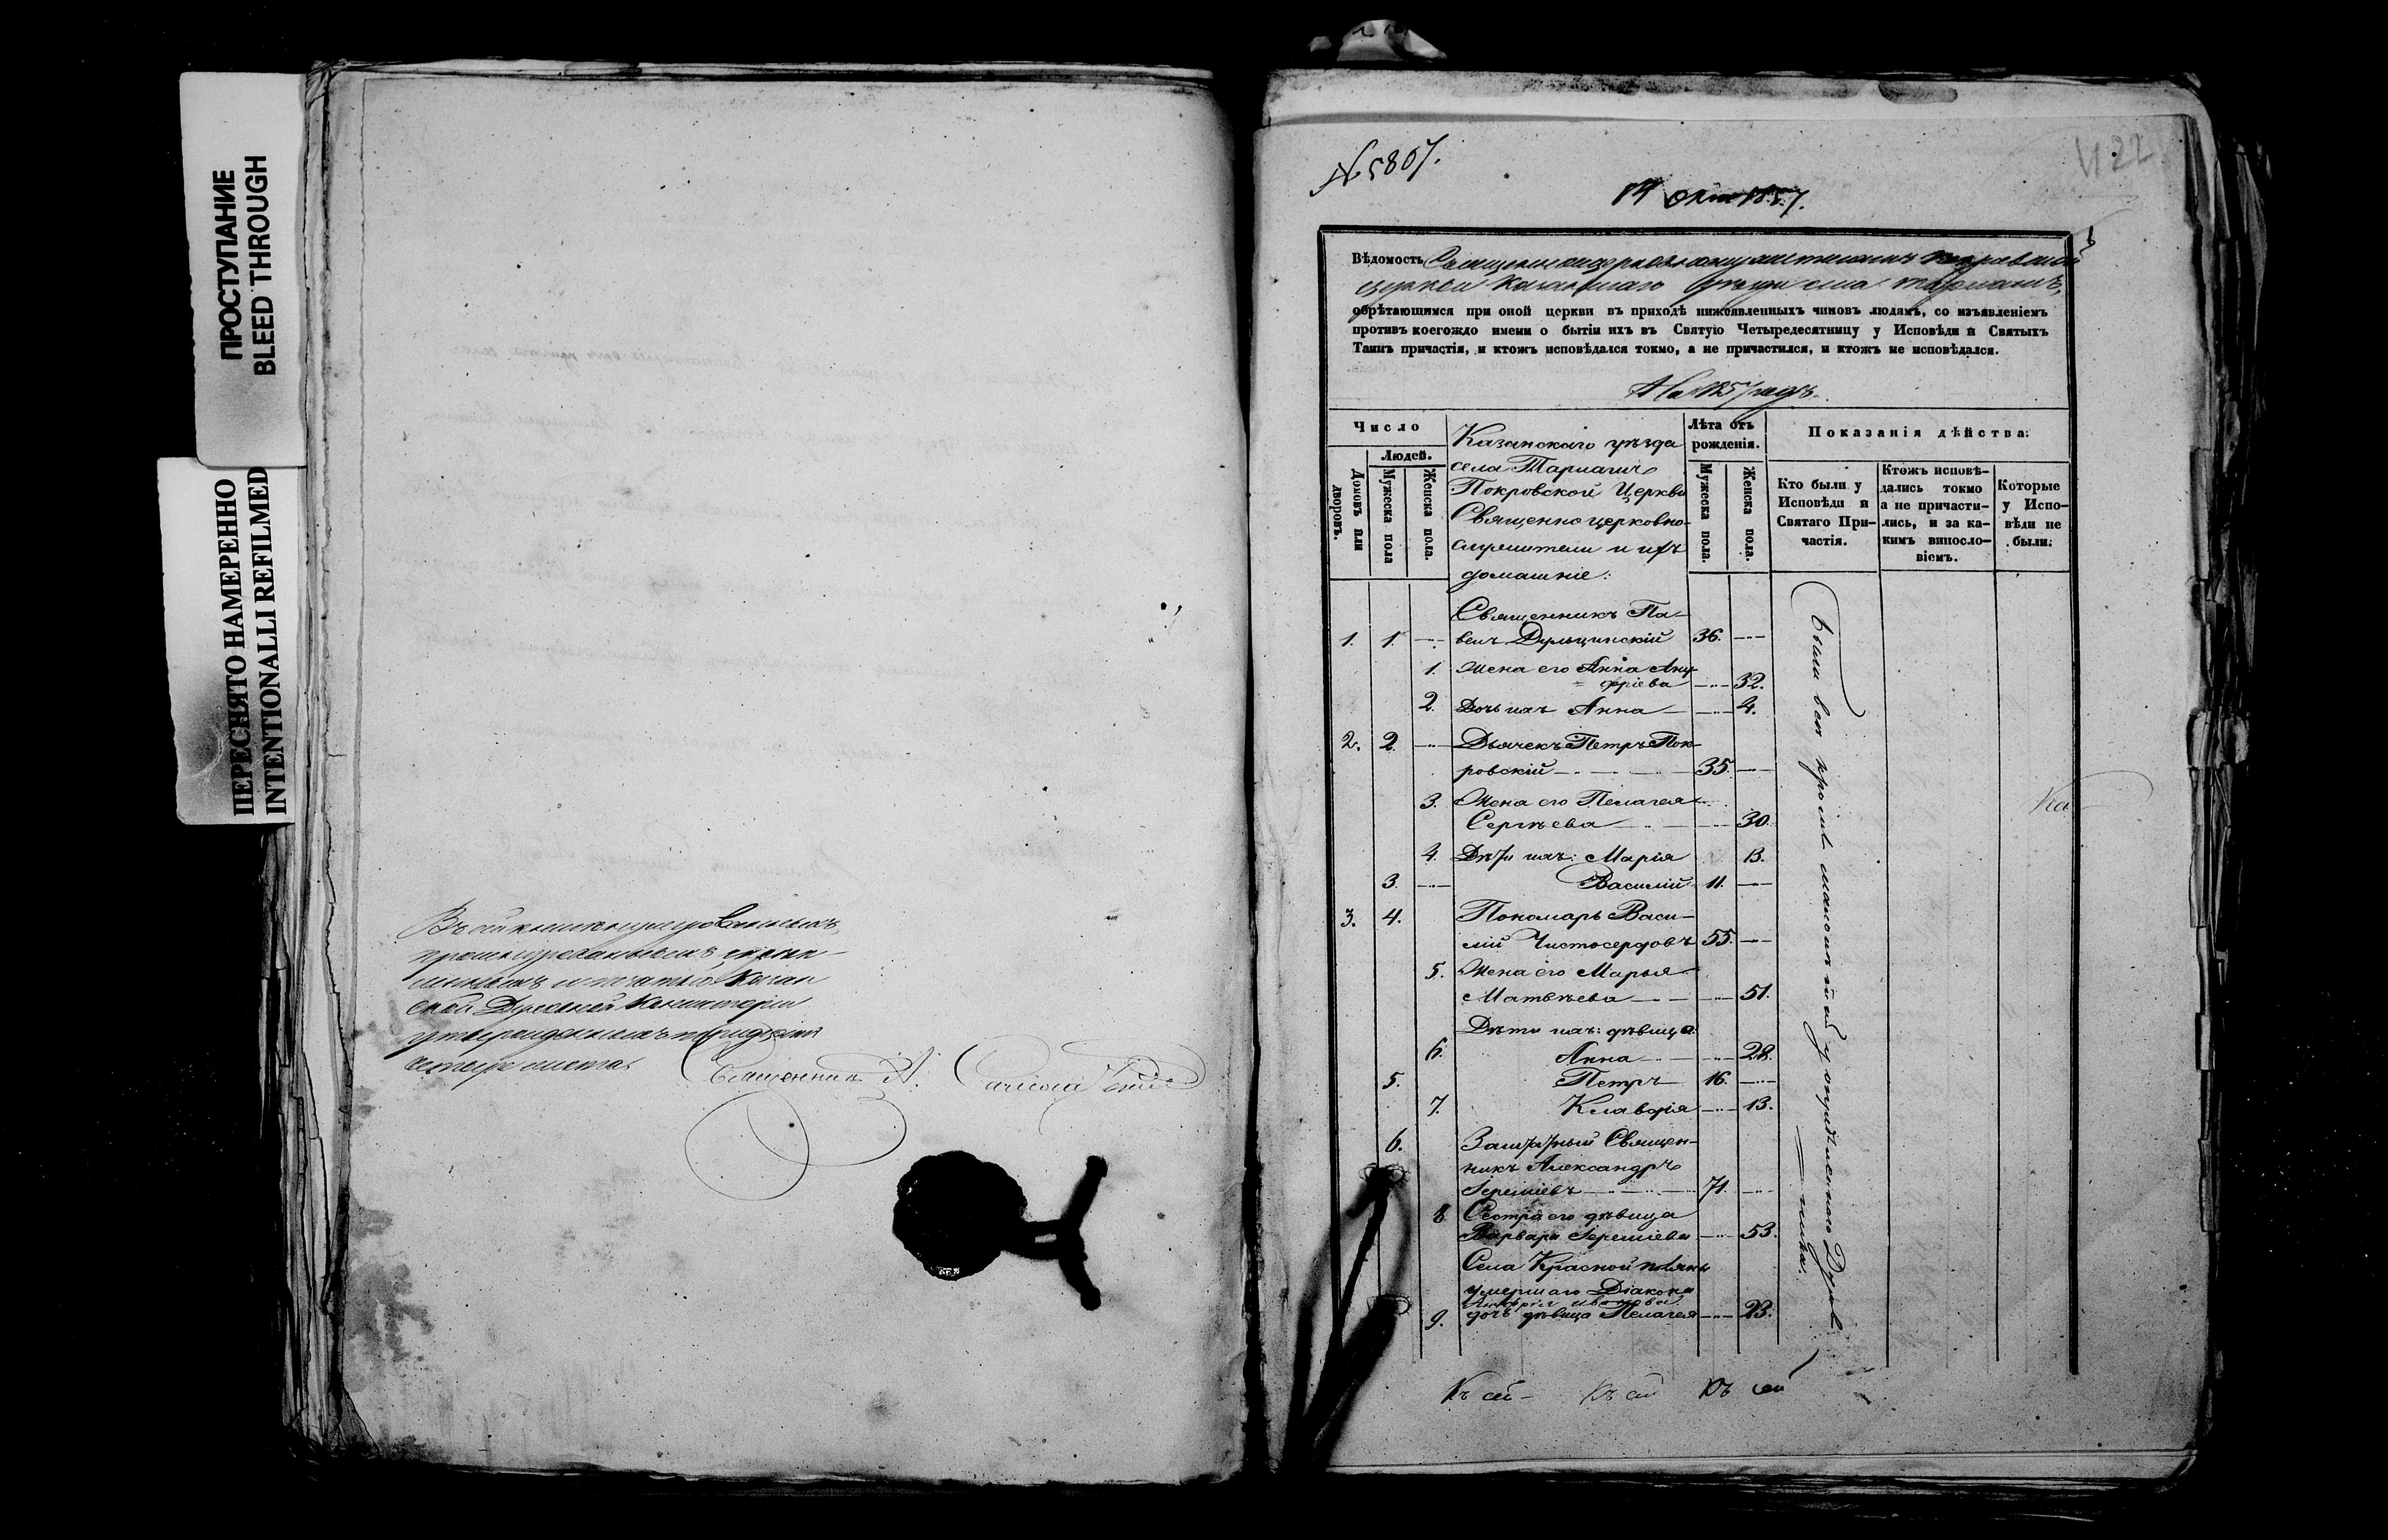 ПРОСТУПАНИЕ
BLEED THROUGH
ПЕРЕСНЯТО НАМЕРЕННО
INTENTIONALLI REFILMED
Въ сей книгѣ нумерованныхъ,
прошнурованныхъ скрѣп-
ленныхъ и печатью Казан
ской Духовной Консисторіи
утвержденныхъ
четыре листа
Священникъ
№ 5807.
14 Окт 1857.
Вѣдомость Священноцерковнослужителямъ Покровской
церкви Казанскаго уѣзда села Тарлашъ,
обрѣтающимся при оной церкви въ приходѣ нижеявленныхъ чиновъ людямъ, со изъявленіемъ
противъ коегождо имени о бытіи ихъ въ Святую Четыредесятницу у Исповѣди и Святыхъ
Таинъ причастія, и ктожъ исповѣдался токмо, а не причастился, и ктожъ не исповѣдался.
На 1857 годъ.
Число
Людей.
Домовъ или дворовъ.
Мужеска пола
Женска пола.
Казанскаго уѣзда
села
Покровской Церкви
Священно церковно-
служители и ихъ
домашніе:
Лѣта отъ
рожденія.
Мужеска пола.
Женска пола.
Показанія дѣйства:
Кто были у
Исповѣди и
Святаго При-
частія.
Ктожъ исповѣ-
дались токмо
а не причасти-
лись, и за ка-
кимъ винословіемъ.
Которые
у Испо-
вѣди не
были.
Священникъ Па-
1. 1. — велъ Дульцинскій 36. —
1. Жена его Анна Ану-
фріева — 32.
2. Дочь ихъ Анна — 4.
2. 2. — Дьячекъ Петръ Пок-
ровскій — 35. —
3. Жена его Пелагея
Сергѣева — 30.
4. Дѣти ихъ: Марія 13.
3. — Василій 11. —
3. 4. Пономарь Васи-
лій Чистосердовъ 55. —
5. Жена его Марья
Матвѣева — 51.
Дѣти ихъ: дѣвица
6. Анна — 28.
5. Петръ 16. —
7. Клавдія — 13.
6. Заштатный Священ-
никъ Александръ
Іереміевъ — 71. —
8 Сестра его дѣвица
Варвара Іереміева — 53.
Села Красной поляны
умершаго Діакона
9. дочь дѣвица Пелагея — 23.
Были вси кромѣ
Къ сей — Къ сей Къ сей